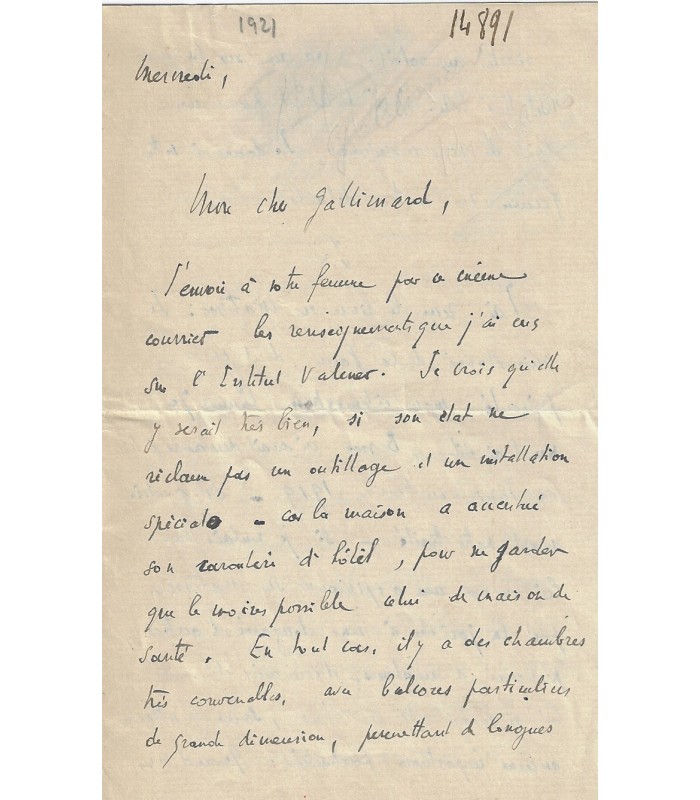 1921
14891
Mercredi,
Mon cher Gallimard,
J'envoie à votre femme par ce même
courrier les renseignements que j'ai eus
sur l'Institut Valmont. Je crois qu'elle
y serait très bien, si son état ne
réclame pas un outillage et un installation
spéciale – car la maison a accentué
son caractère d'hôtel, pour ne garder
que le moins possible celui de maison de
santé. En tout cas, il y a des chambres
très convenables, avec balcons particuliers
de grande dimension, permettant de longues